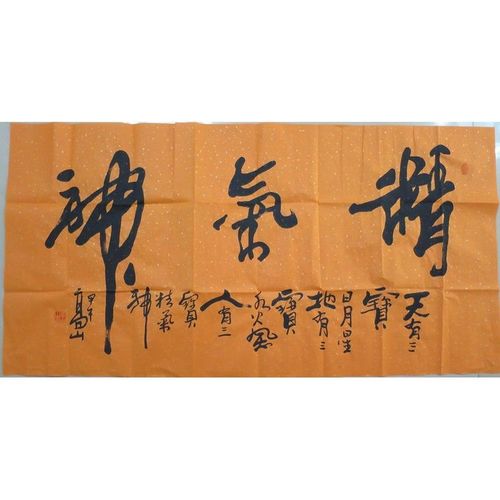 精氣神
天有三
寶
日月星
地有三
寶
水火風
人有三
寶
精氣
神
甲午
高山